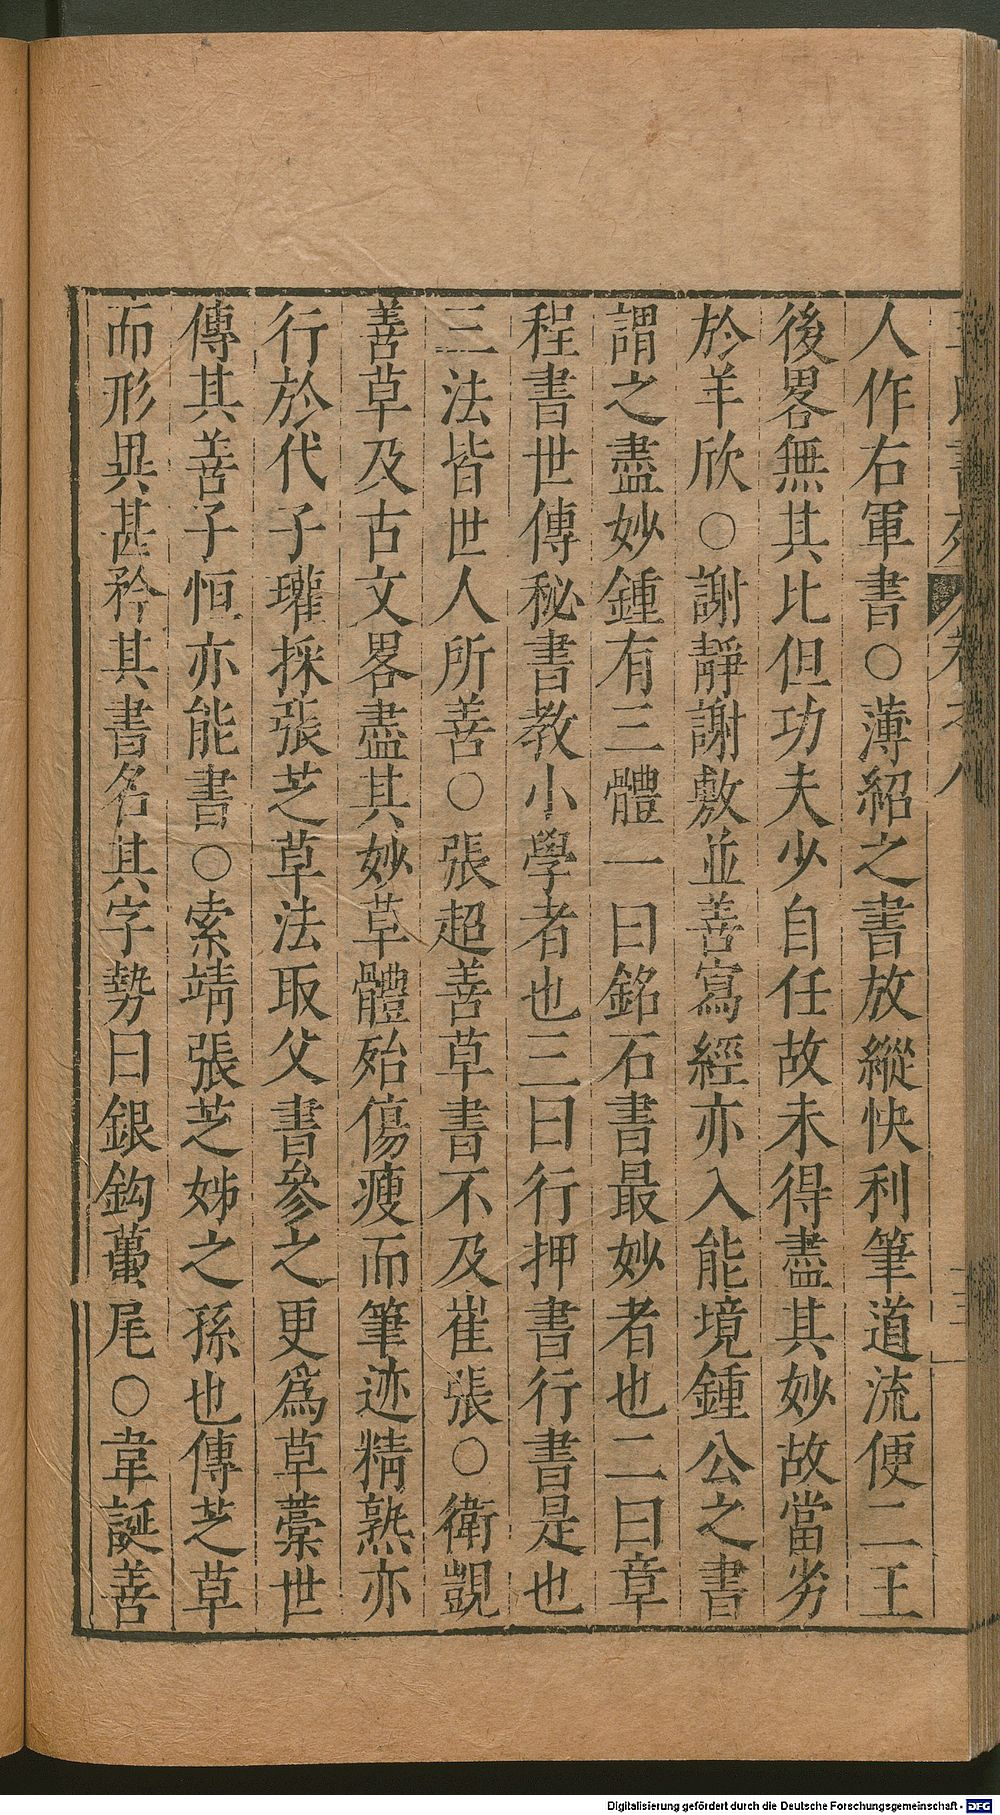 人作右軍書○薄紹之書放縱快利筆道流便二王
後畧無其比但功夫少自任故未得盡其妙故當劣
於羊欣○謝靜謝敷並善寫經亦入能境鍾公之書
謂之盡妙鍾有三體一曰銘石書最妙者也二曰章
程書世傳秘書教小學者也三曰行押書行書是也
三法皆世人所善○張超善草書不及崔張○衛覬
善草及古文畧盡其妙草體殆傷瘦而筆迹精熟亦
行於代子瓘採張芝草法取父書參之更爲草藁世
傳其善子恒亦能書○索靖張芝姊之孫也傳芝草
而形異甚矜其書名其字勢曰銀鈎蠆尾○韋誕善
Digitalisierung gefördert durch die Deutsche Forschungsgemeinschaft - DFG